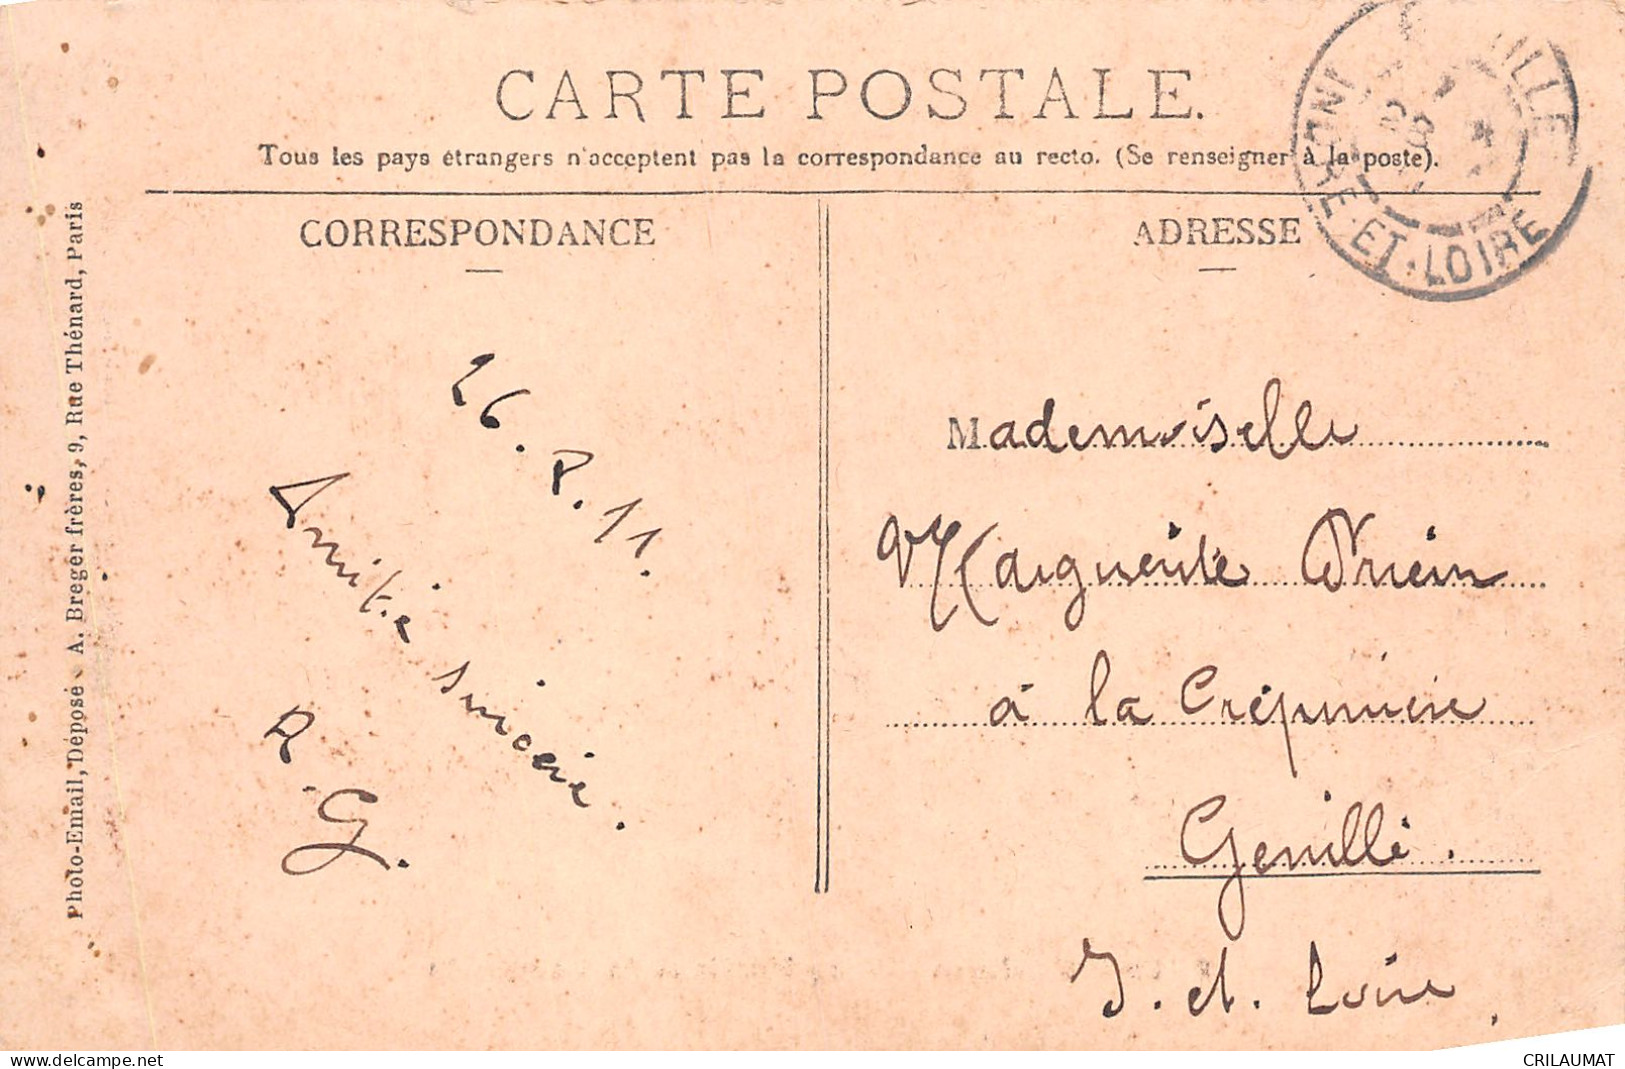 CARTE POSTALE.
Tous les pays étrangers n'acceptent pas la correspondance au recto. (Se renseigner à la poste).
CORRESPONDANCE
ADRESSE
INDRE-ET-LOIRE
Photo-Email, Déposé A. Breger frères, 9, Rue Thénard, Paris
26.8.11.
Amitié sincère.
R.G.
Mademoiselle
Marguerite
à la Crépinière
Genillé.
I. et. Loire
www.delcampe.net
CRILAUMAT